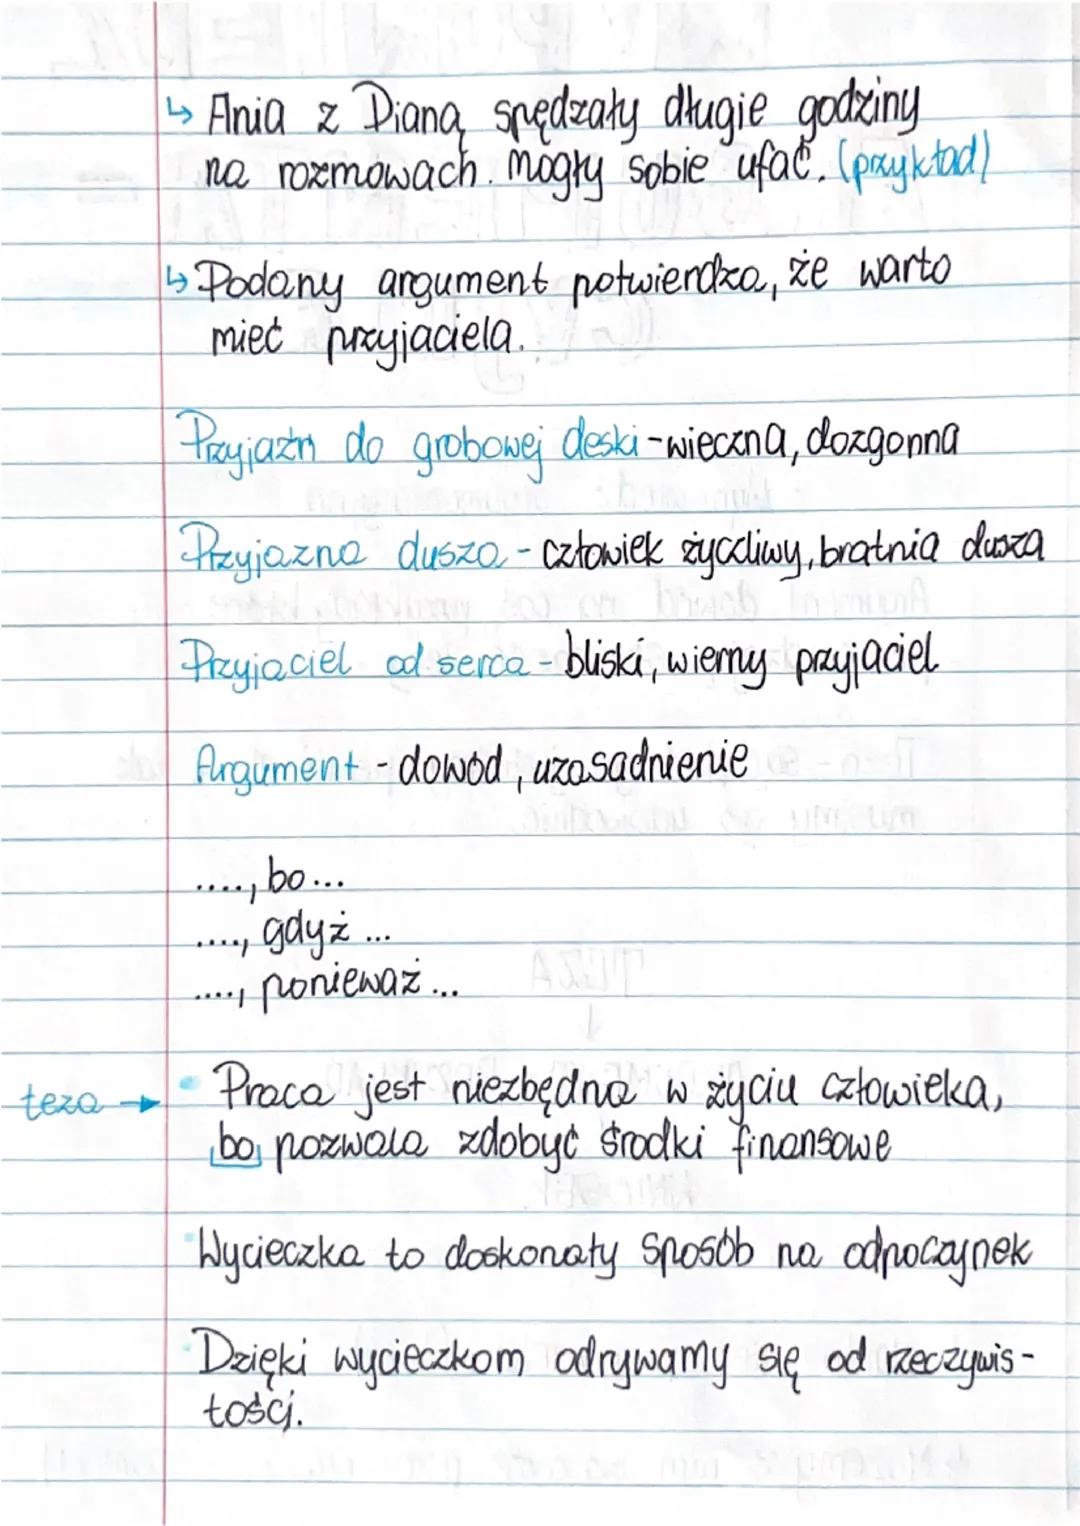 ↳ Ania z Dianą spędzały długie godziny
na rozmowach. Mogły sobie ufać. (przykład)
↳ Podany argument potwierdza, że warto
mieć przyjaciela.
Przyjaźń do grobowej deski - wieczna, dozgonna
Przyjazna dusza - człowiek życzliwy, bratnia dusza
Przyjaciel od serca - bliski, wierny przyjaciel
Argument - dowód, uzasadnienie
...., bo...
...., gdyż ...
...., ponieważ ...
teza → • Praca jest niezbędna w życiu człowieka,
bo pozwala zdobyć środki finansowe
• Wycieczka to doskonały sposób na odpoczynek
• Dzięki wycieczkom odrywamy się od rzeczywis-
tości.